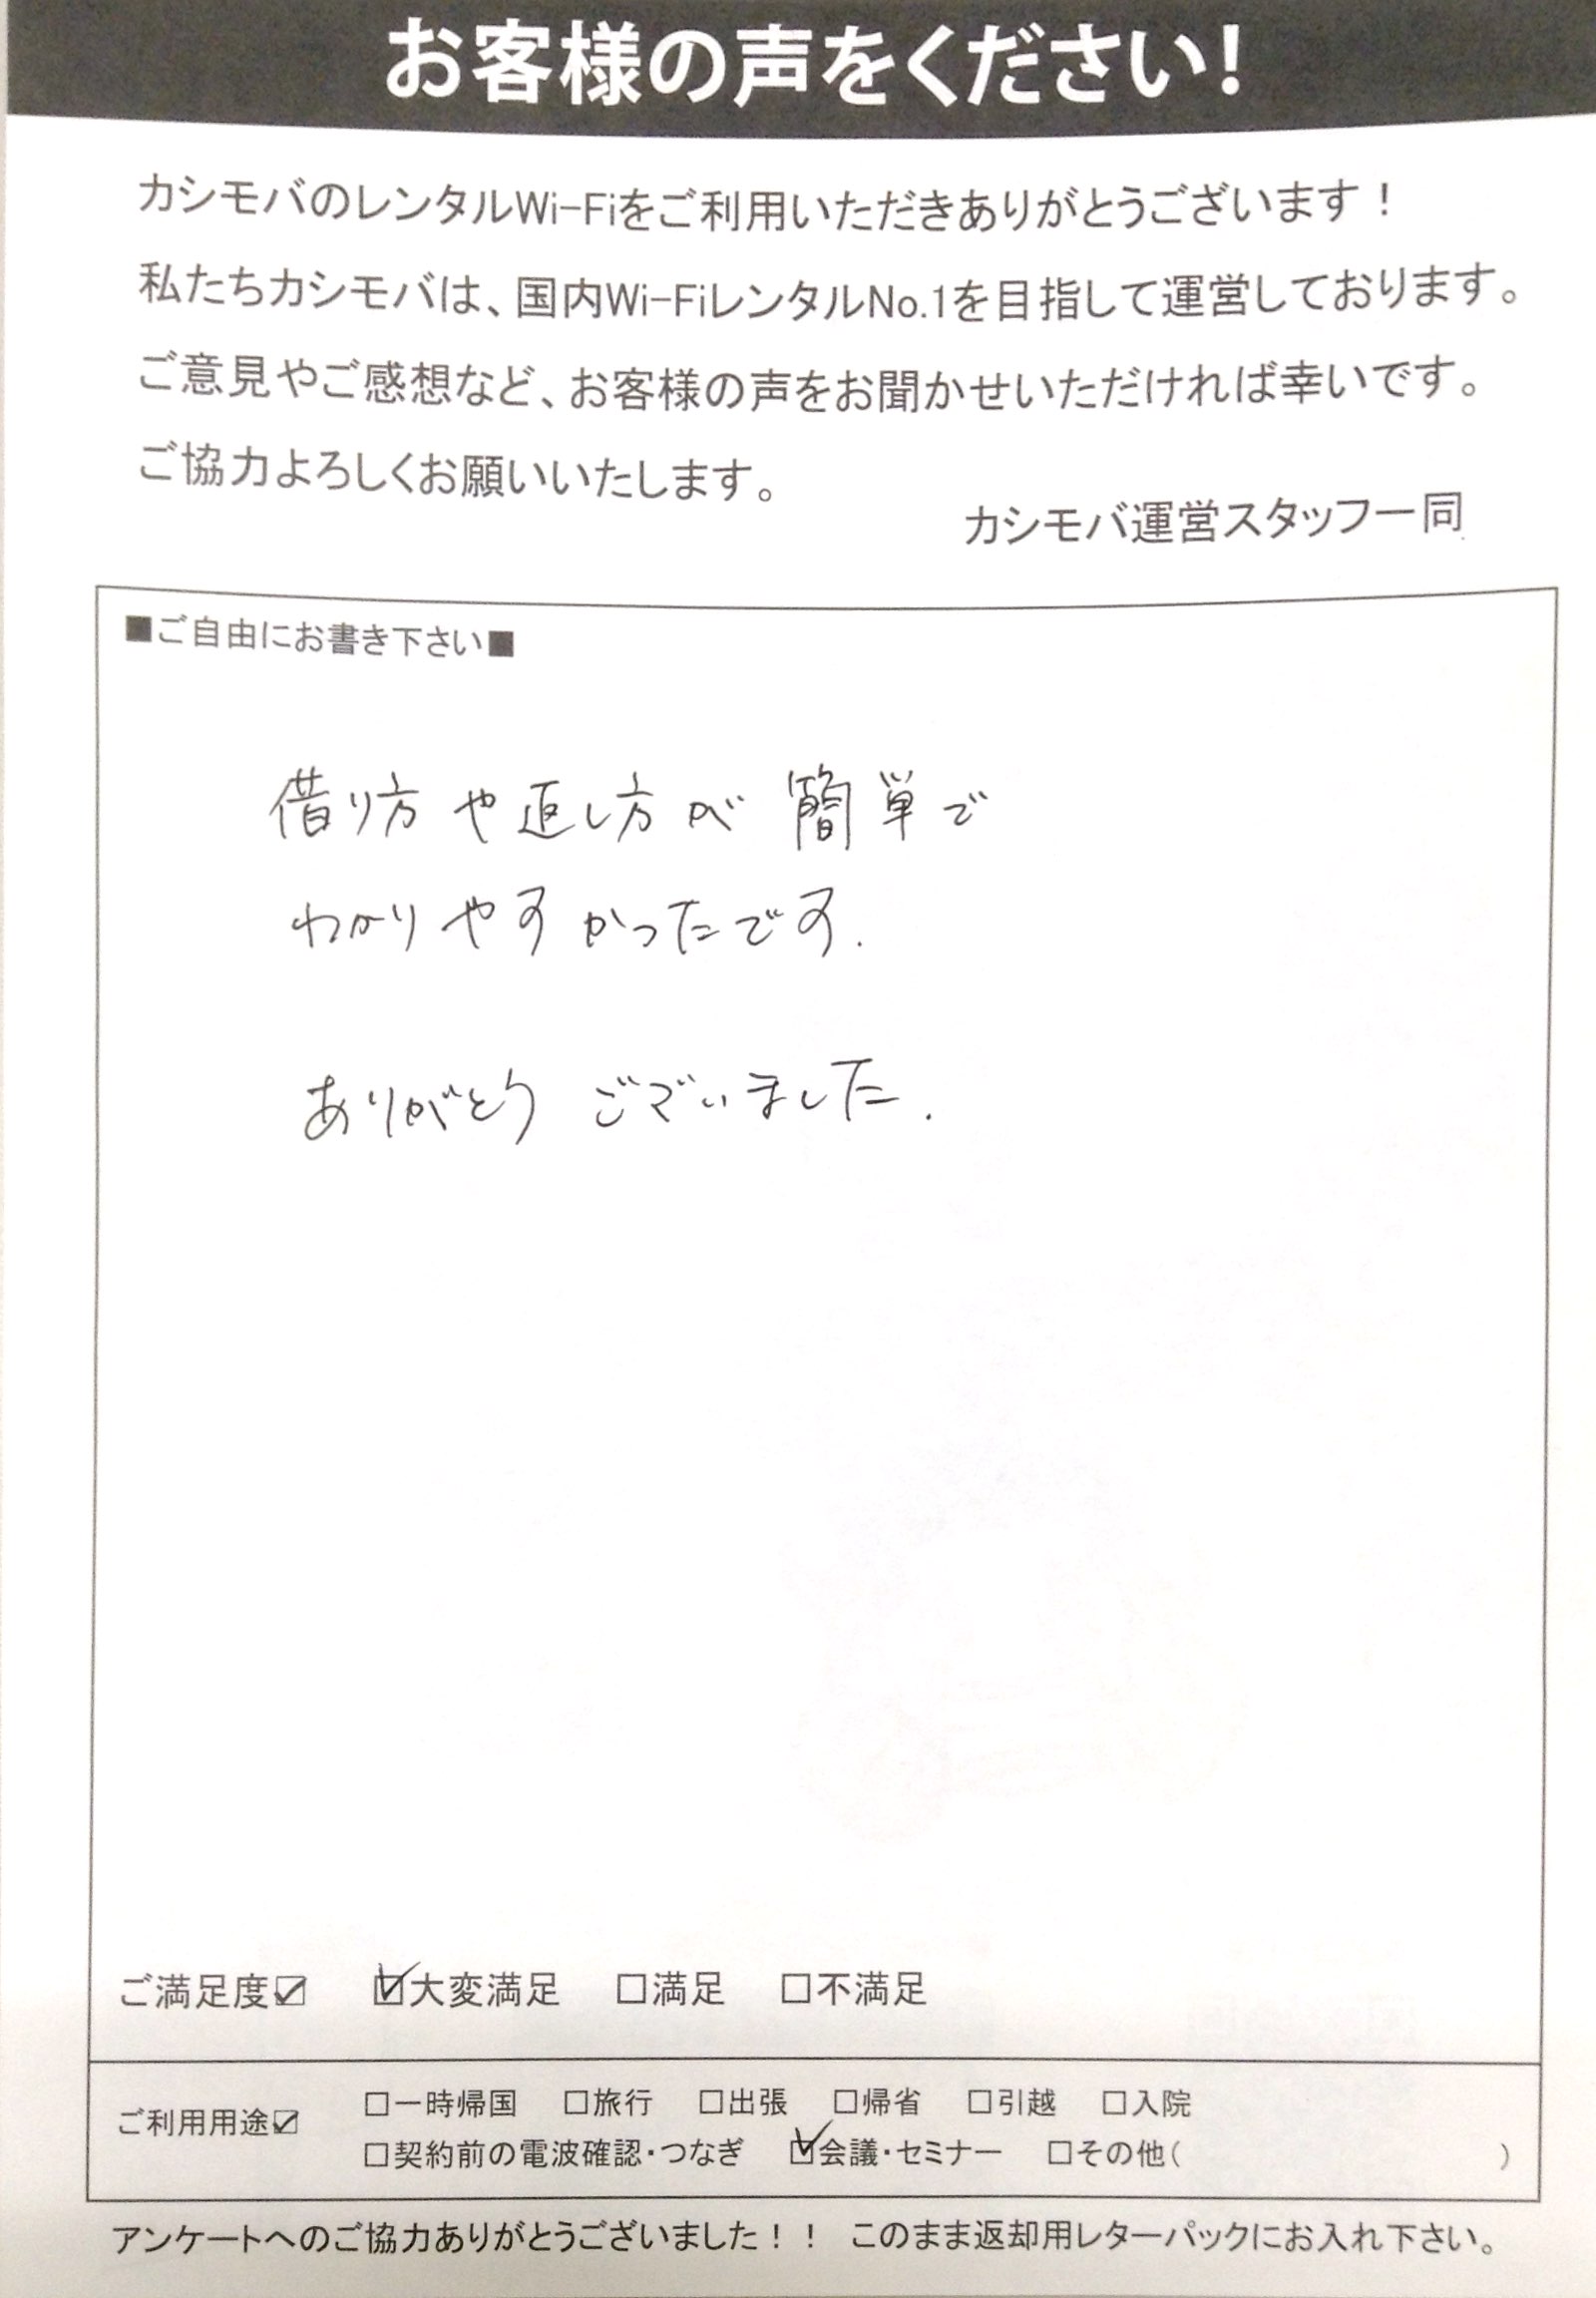 お客様の声をください!
カシモバのレンタルWi-Fiをご利用いただきありがとうございます！
私たちカシモバは、国内Wi-FiレンタルNo.1を目指して運営しております。
ご意見やご感想など、お客様の声をお聞かせいただければ幸いです。
ご協力よろしくお願いいたします。
カシモバ運営スタッフ一同
■ご自由にお書き下さい■
借り方や返し方が簡単で
わかりやすかったです.
ありがとうございました.
ご満足度☑ ☑大変満足 □満足 □不満足
ご利用用途☑ □一時帰国 □旅行 □出張 □帰省 □引越 □入院
□契約前の電波確認・つなぎ ☑会議・セミナー □その他( )
アンケートへのご協力ありがとうございました！！ このまま返却用レターパックにお入れ下さい。